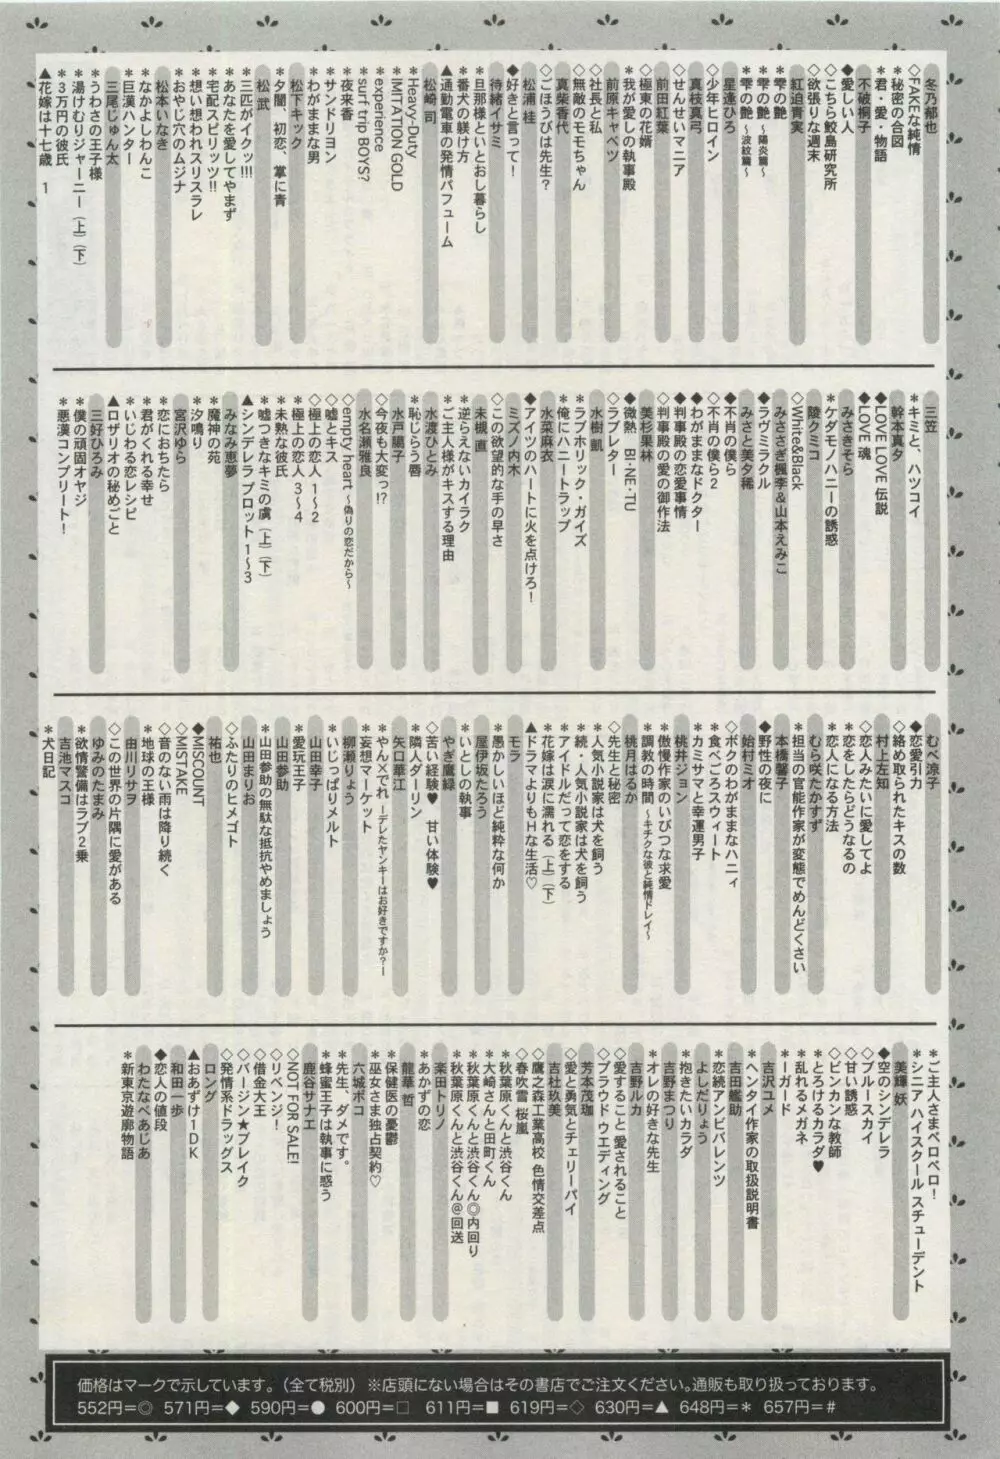 冬乃郁也
◇FAKEな純情
＊秘密の合図
＊君・愛・物語
不破桐子
◆愛しい人
◇こちら鮫島研究所
◇欲張りな週末
紅迫青実
＊雫の艶
＊雫の艶 ～陽炎篇～
＊雫の艶 ～波紋篇～
星逢ひろ
◇少年ヒロイン
真枝真弓
◇せんせいマニア
前田紅葉
◇極東の花婿
＊我が愛しの執事殿
前原キャベツ
◇社長と私
◇無敵のモモちゃん
真柴香代
◇ごほうびは先生？
松浦 桂
◆好きと言って！
待緒イサミ
＊旦那様といとおし暮らし
＊番犬の躾け方
▲通勤電車の発情パフューム
松崎 司
＊Heavy-Duty
＊IMITATION GOLD
＊experience
＊surf trip BOYS?
＊夜来香
＊サンドリヨン
＊わがままな男
松下キック
＊夕闇、初恋、掌に青
松 武
＊三匹がイクッ!!!
＊あなたを愛してやまず
＊宅配スピリッツ!!
＊想い想われスリスラレ
＊おやじ穴のムジナ
松本いなき
＊なかよしわんこ
＊巨漢ハンター
三尾じゅん太
＊うわさの王子様
＊湯けむりジャーニー（上）（下）
＊3万円の彼氏
▲花嫁は十七歳 1
三笠
＊キミと、ハツコイ
幹本真夕
◆LOVE LOVE 伝説
◆LOVE 魂
みさきそら
＊ケダモノハニーの誘惑
陵クミコ
◇White&Black
みささぎ楓李&山本えみこ
◆ラヴミラクル
みさと美夕稀
◆不肖の僕ら
◇不肖の僕ら2
◆わがままなドクター
◆判事殿の恋愛事情
◇判事殿の愛の御作法
美杉果林
◆微熱 BI・NE・TU
◇ラブレター
水樹 凱
＊ラブホリック・ガイズ
＊俺にハニートラップ
水菜麻衣
◆アイツのハートに火を点けろ！
ミズノ内木
◇この欲望的な手の早さ
未槻 直
＊逆らえないカイラク
＊ご主人様がキスする理由
水渡ひとみ
＊恥じらう唇
水戸腸子
◇今夜も大変っ!?
水名瀬雅良
◇empty heart ～偽りの恋だから～
◇嘘とキス
◇極上の恋人 1～2
＊極上の恋人 3～4
＊未熟な彼氏
＊嘘つきなキミの虜（上）（下）
▲シンデレラ プロット 1～3
みなみ恵夢
＊魔神の苑
＊汐鳴り
宮沢ゆら
＊恋におちたら
＊君がくれる幸せ
＊いじわる恋レシピ
▲ロザリオの秘めごと
三好ひろみ
＊僕の頑固オヤジ
＊悪漢コンプリート！
むべ涼子
◆恋愛引力
◇絡め取られたキスの数
村上左知
◇恋人みたいに愛してよ
＊恋をしたらどうなるの
＊恋人になる方法
むら咲たかすず
＊担当の官能作家が変態でめんどくさい
本橋馨子
◆野性の夜に
始村ミオ
◇ボクのわがままなハニィ
＊食べごろスウィート
＊カミサマと幸運男子
桃井ジョン
＊傲慢作家のいびつな求愛
＊調教の時間 ～キチクな彼と純情ドレイ～
桃月はるか
◇先生と秘密
＊人気小説家は犬を飼う
＊続・人気小説家は犬を飼う
＊アイドルだって恋をする
＊花嫁は涙に濡れる（上）（下）
▲ドラマよりもHな生活♡
モラ
＊愚かしいほど純粋な何か
屋伊坂たろう
＊いとしの執事
やぎ鷹緑
◇苦い経験♥ 甘い体験♥
＊隣人ダーリン
矢口華江
＊やん×でれ ーデレたヤンキーはお好きですか？ー
＊妄想マーケット
柳瀬りょう
＊いじっぱりメルト
山田幸子
＊愛玩王子
山田参助
＊山田参助の無駄な抵抗やめましょう
山田まりお
◇ふたりのヒメゴト
祐也
◆MISCOUNT
◇MISTAKE
◇音のない雨は降り続く
＊地球の王様
由川リサヲ
◇この世界の片隅に愛がある
ゆみのたまみ
＊欲情警備はラブ2乗
吉池マスコ
＊犬日記
＊ご主人さまペロペロ！
＊シニア ハイスクール スチューデント
美輝 妖
◆空のシンデレラ
◇ブルースカイ
◇甘い誘惑
◇ビンカンな教師
＊とろけるカラダ♥
＊乱れるメガネ
＊ーガード
吉沢ユメ
＊ヘンタイ作家の取扱説明書
吉田艦助
＊恋続アンビバレンツ
よしだりょう
＊抱きたいカラダ
吉野まつり
＊オレの好きな先生
吉野ルカ
◇愛すること 愛されること
◇ブラウド ウエディング
芳本茂珈
◇愛と勇気とチェリーパイ
吉杜玖美
◇鷹之森工業高校 色情交差点
◇春吹雪 桜嵐
＊秋葉原くんと渋谷くん
＊大崎さんと田町くん
＊秋葉原くんと渋谷くん◎内回り
＊秋葉原くんと渋谷くん@回送
楽田トリノ
＊あかずの恋
龍華 哲
＊保健医の憂鬱
＊巫女さま独占契約♡
六城ポコ
＊先生、ダメです。
＊蜂蜜王子は執事に惑う
鹿谷サナエ
◇NOT FOR SALE!
◇リベンジ！
◇借金大王
◇バージン★ブレイク
◇発情系ドラッグス
ロング
▲おあずけ1DK
和田一歩
◆恋人の値段
わたなべあじあ
＊新東京遊廓物語
価格はマークで示しています。（全て税別） ※店頭にない場合はその書店でご注文ください。通販も取り扱っております。
552円＝◎ 571円＝◆ 590円＝● 600円＝□ 611円＝■ 619円＝◇ 630円＝▲ 648円＝＊ 657円＝#